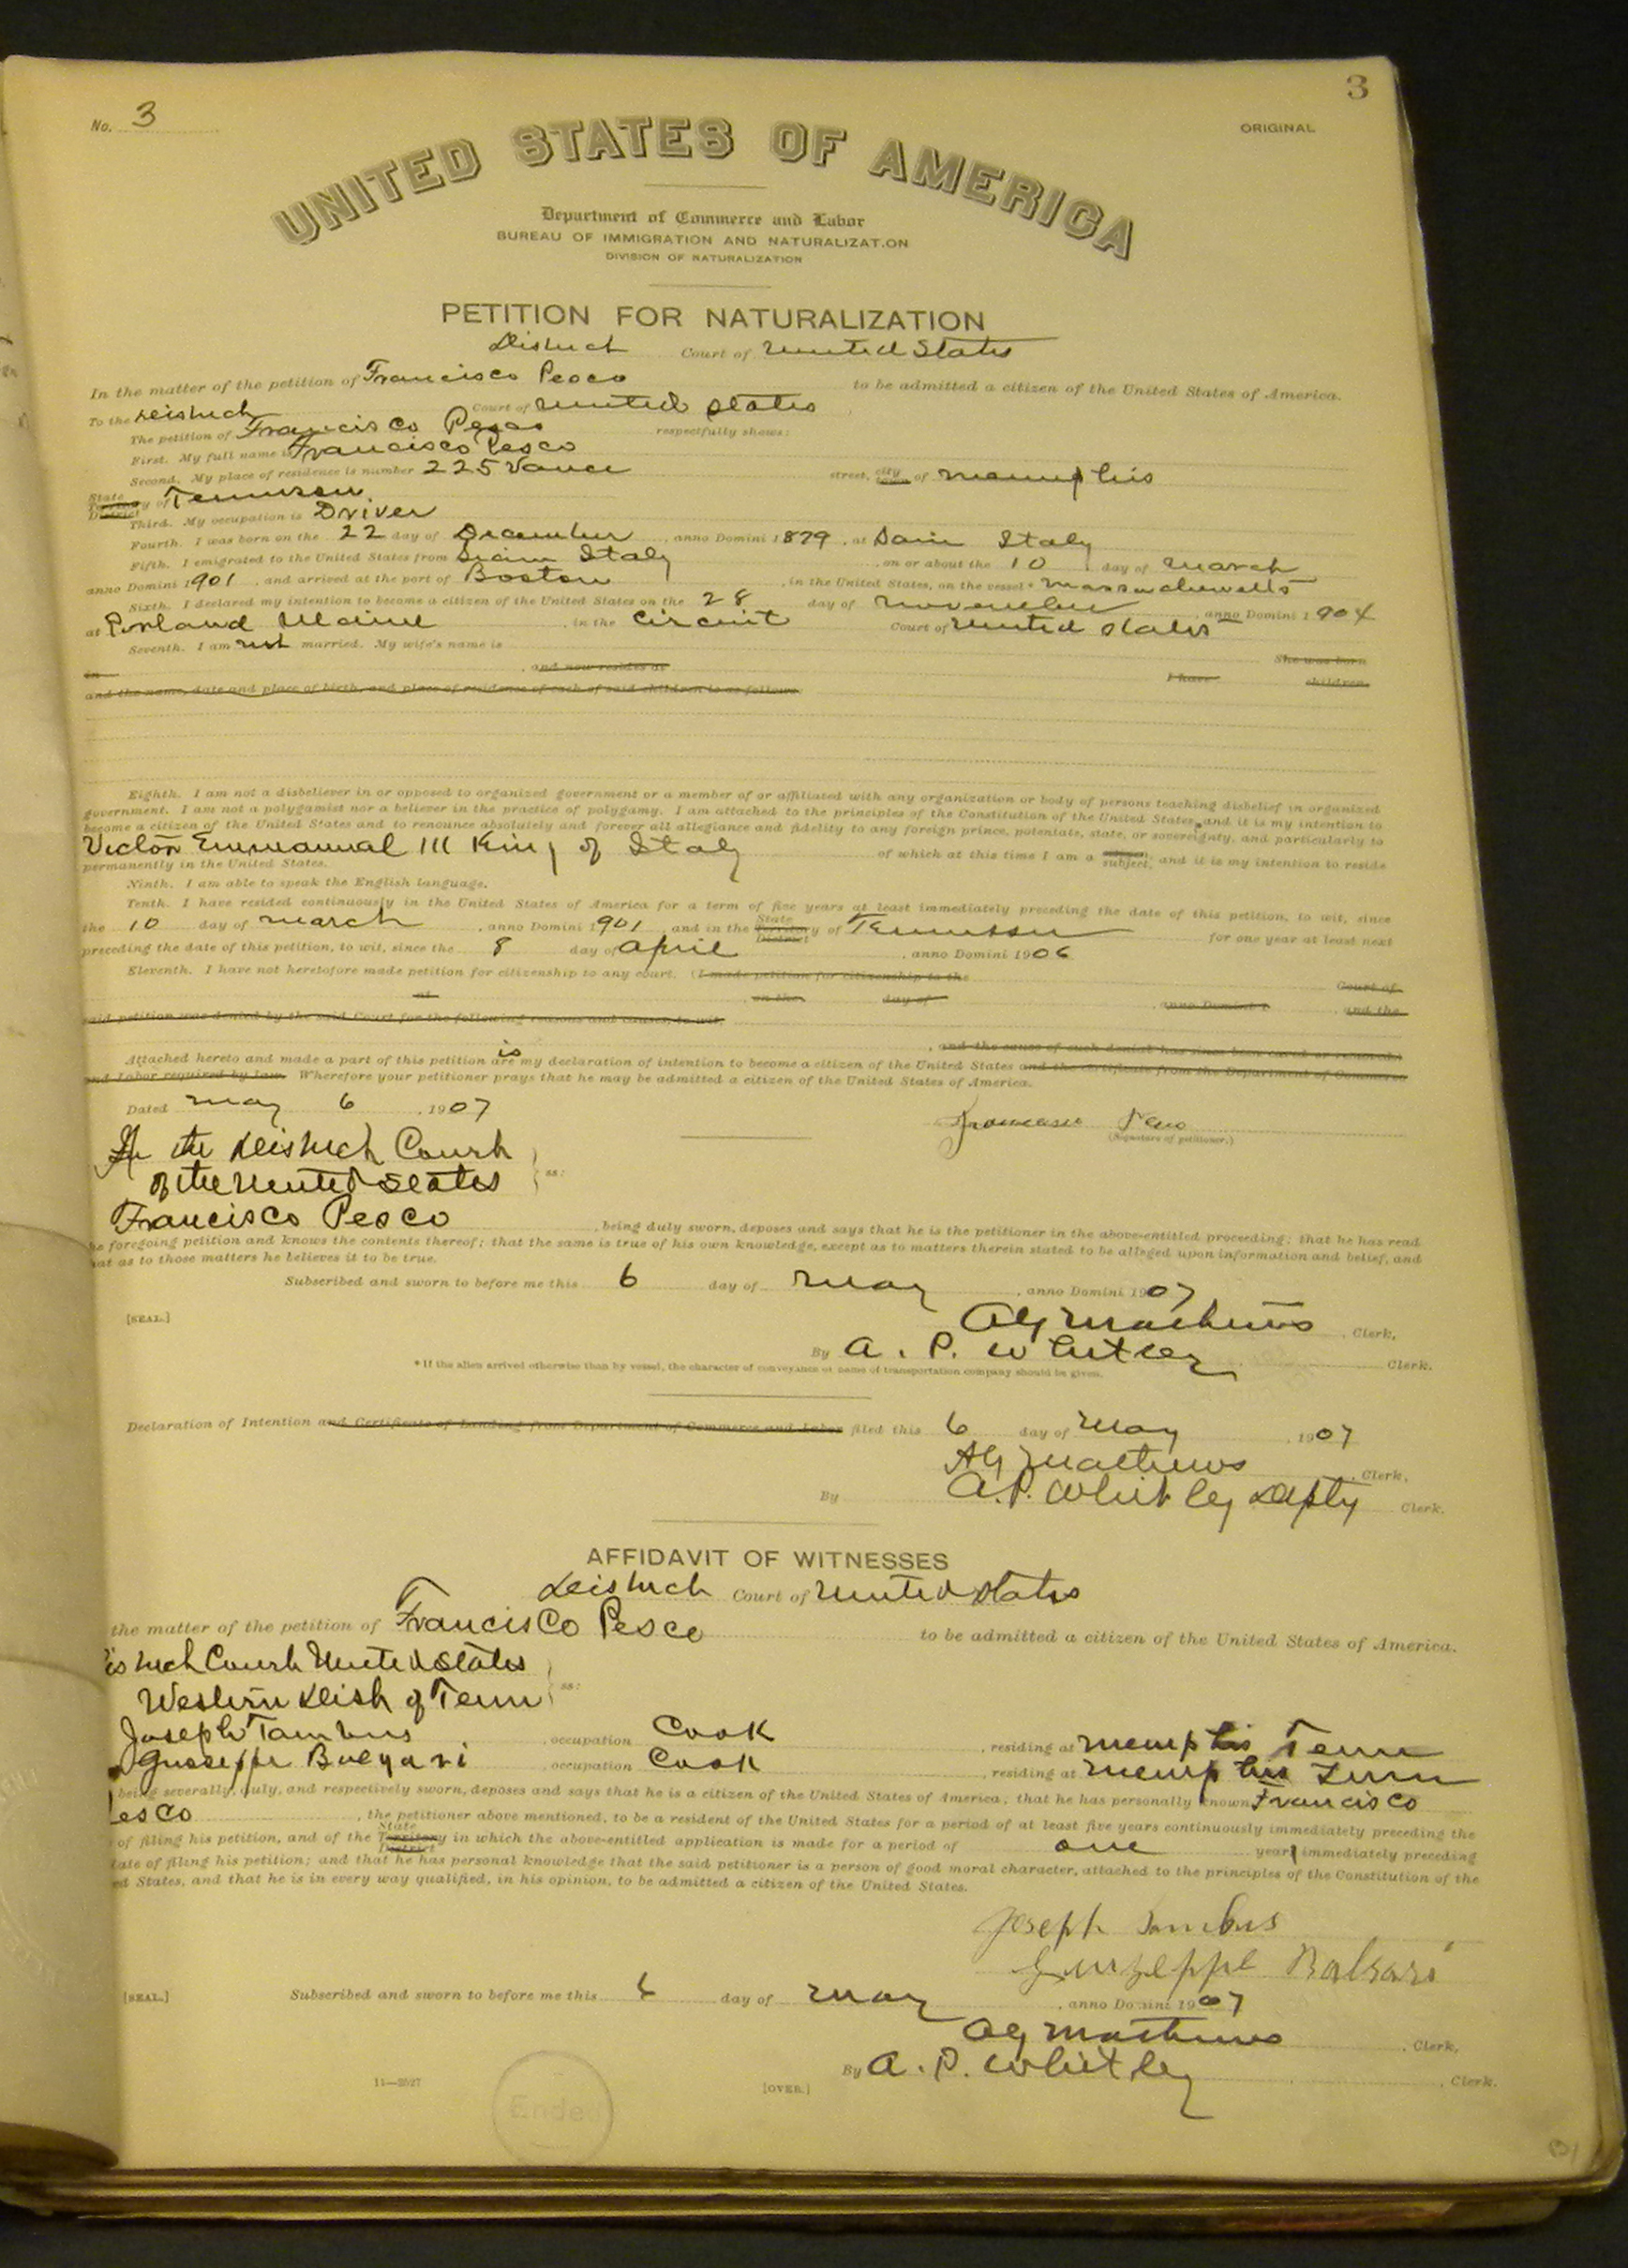 3
No. 3
ORIGINAL
UNITED STATES OF AMERICA
Department of Commerce and Labor
BUREAU OF IMMIGRATION AND NATURALIZATION
DIVISION OF NATURALIZATION
PETITION FOR NATURALIZATION
District Court of United States
In the matter of the petition of Francisco Pesco to be admitted a citizen of the United States of America.
To the District Court of United States
The petition of Francisco Pesco respectfully shows:
First. My full name is Francisco Pesco
Second. My place of residence is number 225 Vance street, city of Memphis
State Territory District of Tennessee
Third. My occupation is Driver
Fourth. I was born on the 22 day of December, anno Domini 1879, at Italy
Fifth. I emigrated to the United States from Italy, on or about the 10 day of March
anno Domini 1901, and arrived at the port of Boston, in the United States, on the vessel* Massachusetts
Sixth. I declared my intention to become a citizen of the United States on the 28 day of November, anno Domini 1904
at Porland Maine, in the Circuit Court of United States
Seventh. I am not married. My wife's name is
She was born
in, and now resides at
I have children,
and the name, date and place of birth, and place of residence of each of said children is as follows:
Eighth. I am not a disbeliever in or opposed to organized government or a member of or affiliated with any organization or body of persons teaching disbelief in organized
government. I am not a polygamist nor a believer in the practice of polygamy. I am attached to the principles of the Constitution of the United States, and it is my intention to
become a citizen of the United States and to renounce absolutely and forever all allegiance and fidelity to any foreign prince, potentate, state, or sovereignty, and particularly to
Victor Emmanual III King of Italy of which at this time I am a subject, and it is my intention to reside
permanently in the United States.
Ninth. I am able to speak the English language.
Tenth. I have resided continuously in the United States of America for a term of five years at least immediately preceding the date of this petition, to wit, since
the 10 day of March, anno Domini 1901, and in the State Territory District of Tennessee for one year at least next
preceding the date of this petition, to wit, since the 8 day of April, anno Domini 1906
Eleventh. I have not heretofore made petition for citizenship to any court. (I made petition for citizenship to the
Court of
at on the day of, anno Domini 1 and the
said petition was denied by the said Court for the following reasons and causes, to wit,
, and the cause of such denial has since been cured or removed.)
Attached hereto and made a part of this petition are is my declaration of intention to become a citizen of the United States and the certificate from the Department of Commerce
and Labor required by law. Wherefore your petitioner prays that he may be admitted a citizen of the United States of America.
Dated May 6, 1907
(Signature of petitioner.)
In the District Court
of the United States ss:
Francisco Pesco, being duly sworn, deposes and says that he is the petitioner in the above-entitled proceeding; that he has read
he foregoing petition and knows the contents thereof; that the same is true of his own knowledge, except as to matters therein stated to be alleged upon information and belief, and
hat as to those matters he believes it to be true.
Subscribed and sworn to before me this 6 day of May, anno Domini 1907
[SEAL.]
AG Mathews, Clerk.
By A. P. Whitley Clerk.
* If the alien arrived otherwise than by vessel, the character of conveyance or name of transportation company should be given.
Declaration of Intention and Certificate of Landing from Department of Commerce and Labor filed this 6 day of May, 1907
AG Mathews, Clerk.
By A. P. Whitley Depty Clerk.
AFFIDAVIT OF WITNESSES
District Court of United States
the matter of the petition of Francisco Pesco to be admitted a citizen of the United States of America.
istrict Court United States
Western Dist of Tenn ss:
Joseph Tambus, occupation Cook, residing at Memphis Tenn
Giuseppe, occupation Cook, residing at Memphis Tenn
being severally, duly, and respectively sworn, deposes and says that he is a citizen of the United States of America; that he has personally known Francisco
Pesco, the petitioner above mentioned, to be a resident of the United States for a period of at least five years continuously immediately preceding the
of filing his petition, and of the State Territory District in which the above-entitled application is made for a period of one year immediately preceding
date of filing his petition; and that he has personal knowledge that the said petitioner is a person of good moral character, attached to the principles of the Constitution of the
ed States, and that he is in every way qualified, in his opinion, to be admitted a citizen of the United States.
Joseph Tambus
Giuzeppe Balsari
[SEAL.]
Subscribed and sworn to before me this 6 day of May, anno Domini 1907
AG Mathews, Clerk.
By A. P. Whitley, Clerk.
11—2527
[OVER.]